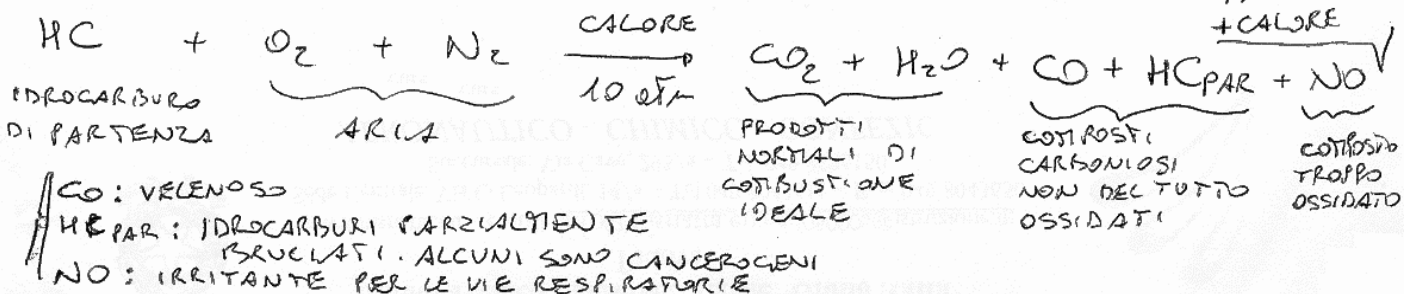 +CALORE
HC + O2 + N2 CALORE 10 atm → CO2 + H2O + CO + HCPAR + NO
IDROCARBURO DI PARTENZA
ARIA
PRODOTTI NORMALI DI COMBUSTIONE IDEALE
COMPOSTI CARBONIOSI NON DEL TUTTO OSSIDATI
COMPOSTO TROPPO OSSIDATO
CO: VELENOSO
HC PAR: IDROCARBURI PARZIALMENTE
BRUCIATI. ALCUNI SONO CANCEROGENI
NO: IRRITANTE PER LE VIE RESPIRATORIE